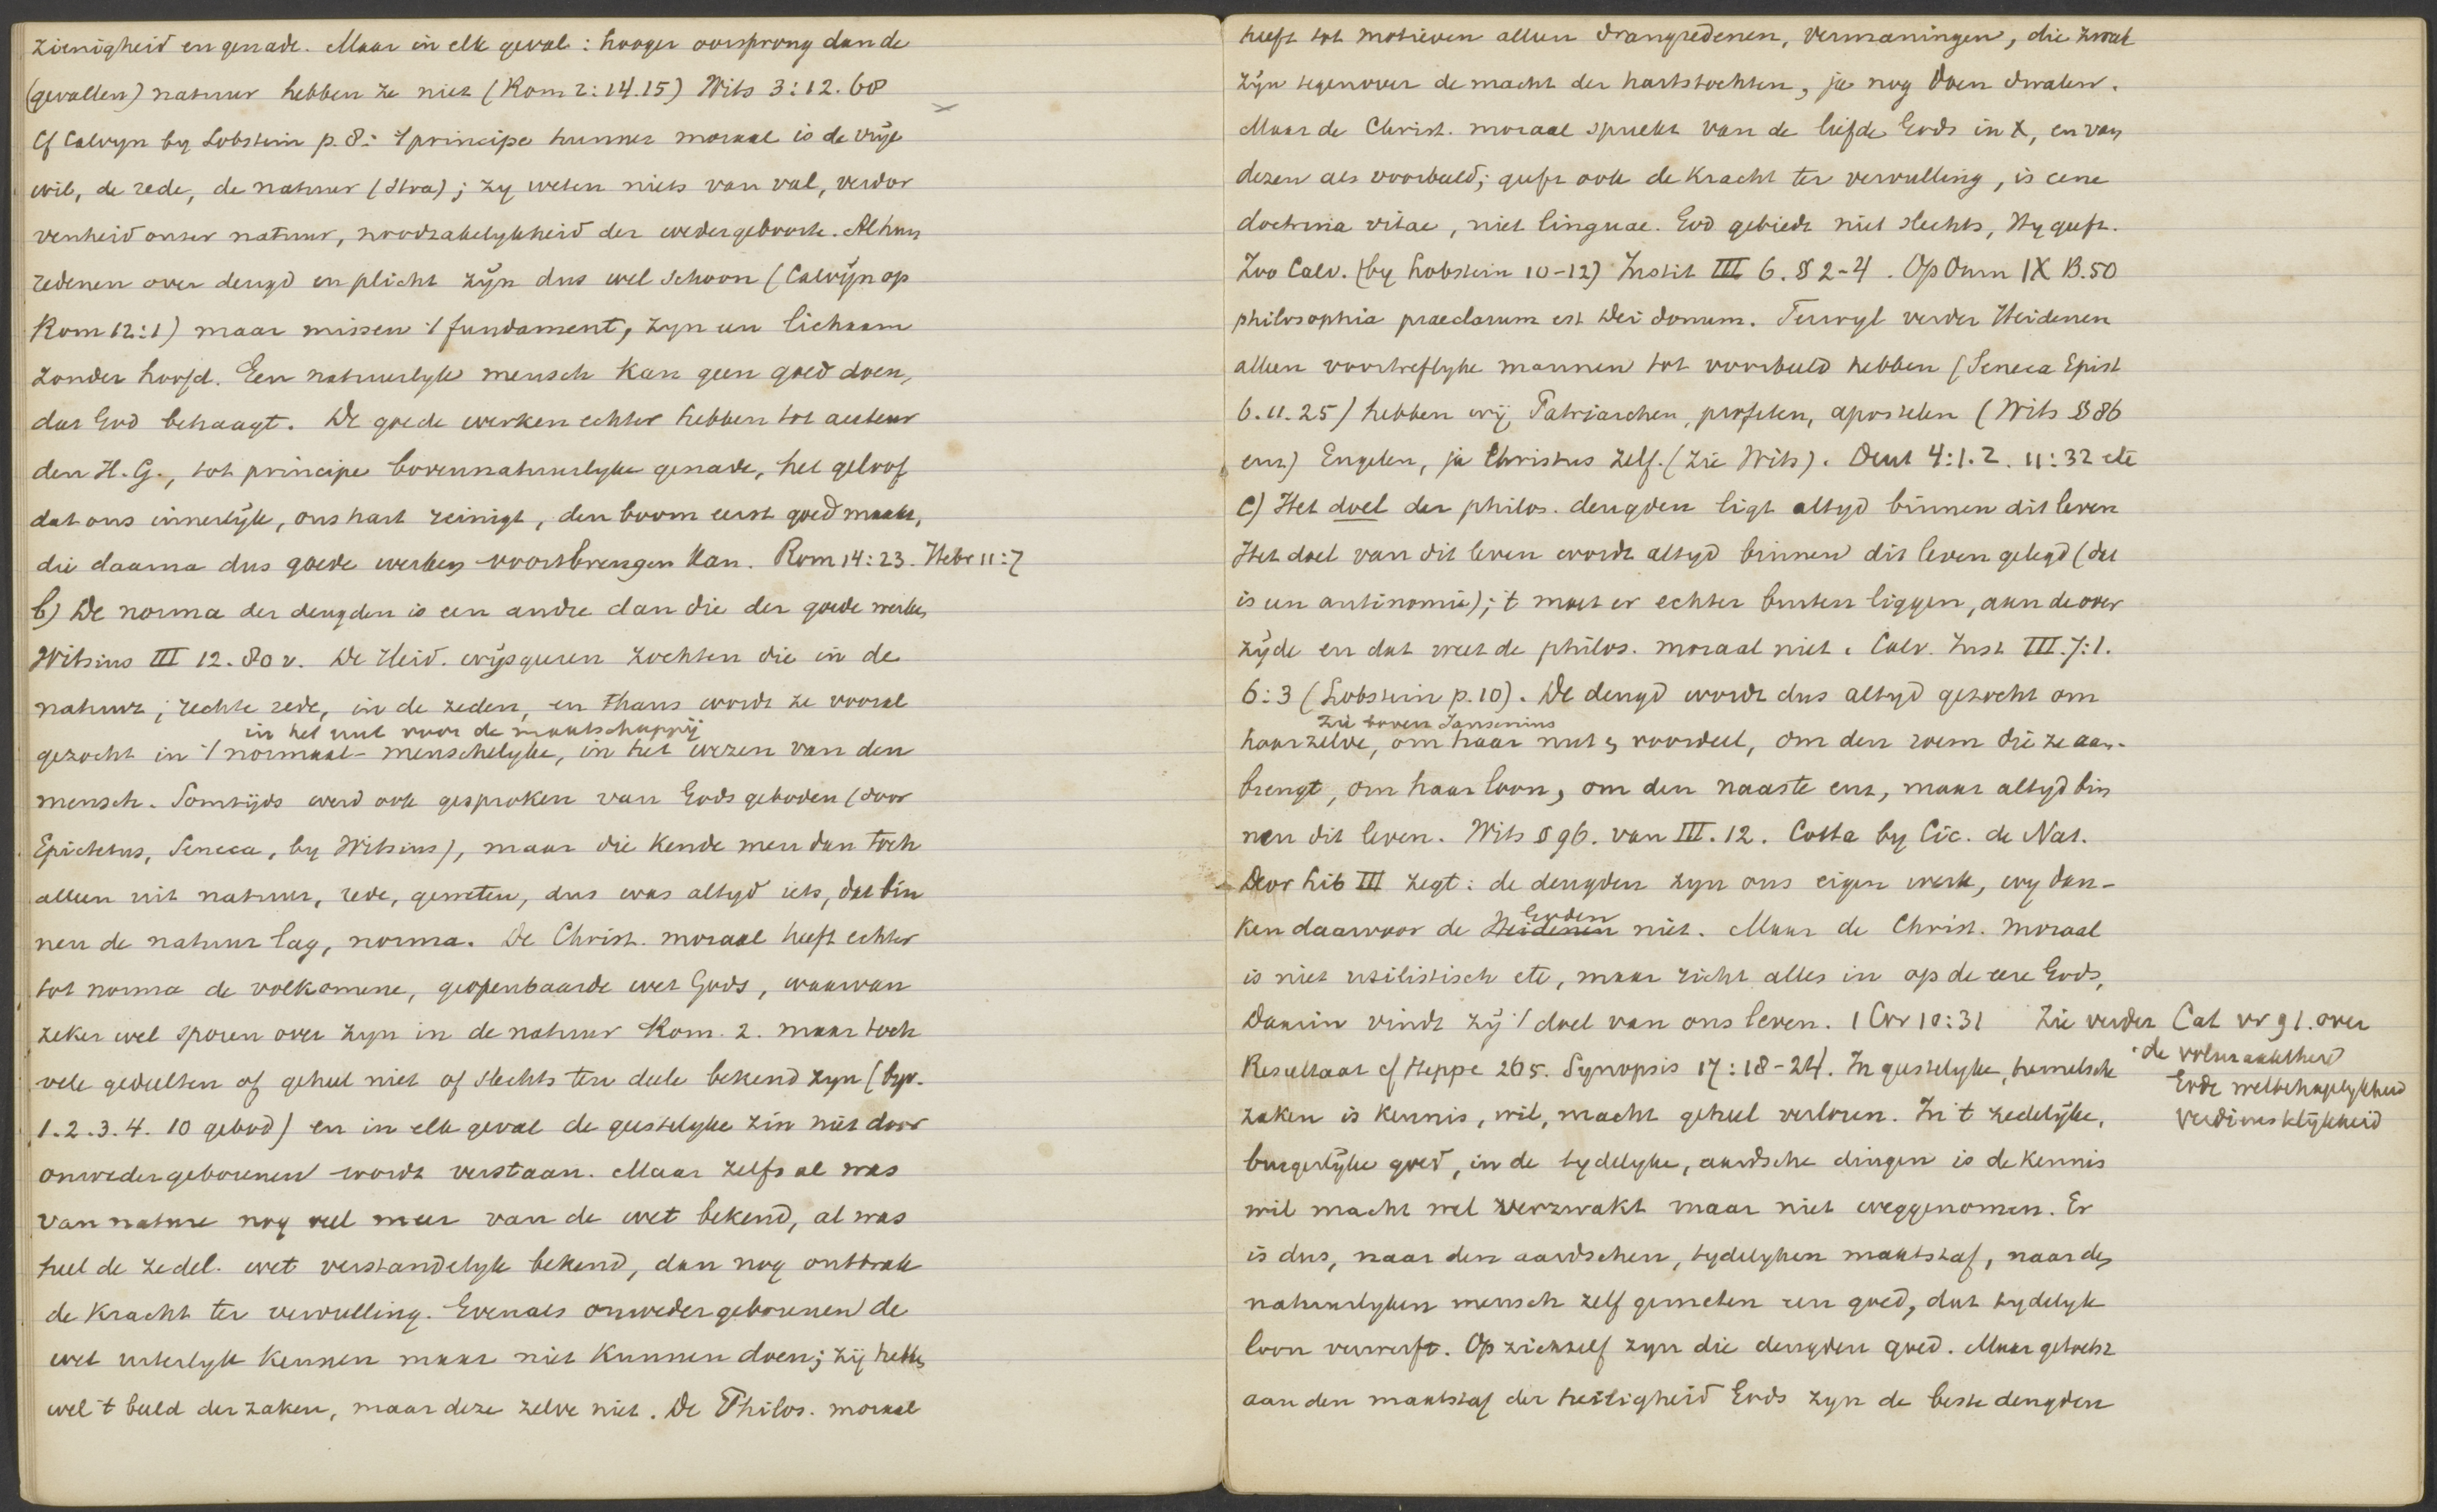 zienigheid en genade. Maar in elk geval: hooger oorsprong dan de
(gevallen) natuur hebben ze niet (Rom 2:14.15) Wits 3:12.68
Cf Calvyn by Lobstein p. 8: 't principe hunner moraal is de vrije
wil, de rede, de natuur (Stoa); zy weten niets van val, verdor
venheid onser natuur, noodzakelykheid der wedergeboorte. Al hun
redenen over deugd en plicht zijn dus wel schoon (Calvijn op
Rom 12:1) maar missen 't fundament, zyn een lichaam
zonder hoofd. Een natuurlyk mensch kan geen goed doen,
dat God behaagt. De goede werken echter hebben tot auteur
den H. G., tot principe bovennatuurlyke genade, het geloof
dat ons innerlijk, ons hart reinigt, den boom eerst goed maakt,
die daarna dus goede werken voortbrengen kan. Rom 14:23. Hebr 11:7
b) De norma der deugden is een andre dan die der goede werken
Witsius III 12. 80 v. De Heid. wijsgeeren zochten die in de
natuur, rechte rede, in de zeden, en thans wordt ze vooral
in het nut voor de maatschappij
gezocht in 't normaal-menschelyke, in het wezen van den
mensch. Somtijds werd ook gesproken van Gods geboden (door
Epictetus, Seneca, by Witsius), maar die kende men dan toch
alleen uit natuur, rede, geweten, dus was altyd iets, dat bin
nen de natuur lag, norma. De Christ. moraal heeft echter
tot norma de volkomene, geopenbaarde wet Gods, waarvan
zeker wel sporen over zyn in de natuur Rom. 2. maar toch
vele gedeelten of geheel niet of slechts ten deele bekend zyn (byv.
1.2.3.4. 10 gebod) en in elk geval de geestelyke zin niet door
onwedergeborenen wordt verstaan. Maar zelfs al was
van nature nog veel meer van de wet bekend, al was
heel de zedel. wet verstandelyk bekend, dan nog ontbrak
de kracht ter vervulling. Evenals onwedergeborenen de
wet uiterlyk kennen maar niet kunnen doen; zij hebben
wel 't beeld der zaken, maar deze zelve niet. De Philos. moraal
heeft tot motieven alleen drangredenen, vermaningen, die zwak
zijn tegenover de macht der hartstochten, ja nog doen dwalen.
Maar de Christ. moraal spreekt van de liefde Gods in X, en van
dezen als voorbeeld; geeft ook de kracht ter vervulling, is eene
doctrina vitae, niet linguae. God gebiedt niet slechts, Hy geeft.
Zoo Calv. (by Lobstein 10-12) Instit III 6. § 2-4. Op Omn IX B. 50
philosophia praeclarum est Dei donum. Terwyl verder Heidenen
alleen voortreflyke mannen tot voorbeeld hebben (Seneca Epist
6. 11. 25) hebben wij Patriarchen, profeten, apostelen (Wits § 86
enz) Engelen, ja Christus zelf. (zie Wits). Deut 4:1.2. 11:32 etc
c) Het doel der philos. deugden ligt altyd binnen dit leven
Het doel van dit leven wordt altyd binnen dit leven gelegd (dat
is een antinomie); 't moet er echter buiten liggen, aan de over
zijde en dat weet de philos. moraal niet. Calv. Inst III. 7:1.
6:3 (Lobstein p. 10). De deugd wordt dus altyd gezocht om
zie boven Jansenius
haarzelve, om haar nut, voordeel, om den roem die ze aan-
brengt, om haar loon, om den naaste enz, maar altyd bin
nen dit leven. Wits § 96. van III. 12. Cotta by Cic. de Nat.
Deor Lib III zegt: de deugden zyn ons eigen werk, wy dan-
Goden
ken daarvoor de Heidenen niet. Maar de Christ. moraal
is niet utilistisch etc, maar richt alles in op de eere Gods,
Daarin vindt zij 't doel van ons leven. 1 Cor 10:31 Zie verder Cat vr 91. over
de volmaaktheid
Gode welbehagelykheid
verdienstelijkheid
Resultaat cf Heppe 265. Synopsis 17:18-24. In geestelyke, hemelsche
zaken is kennis, wil, macht geheel verloren. In 't zedelijke,
burgerlijke goed, in de tydelyke, aardsche dingen is de kennis
wil macht wel verzwakt maar niet weggenomen. Er
is dus, naar den aardschen, tydelyken maatstaf, naar den
natuurlyken mensch zelf gemeten een goed, dat tydelyk
loon verwerft. Op zichzelf zyn die deugden goed. Maar getoetst
aan den maatstaf der heiligheid Gods zyn de beste deugden